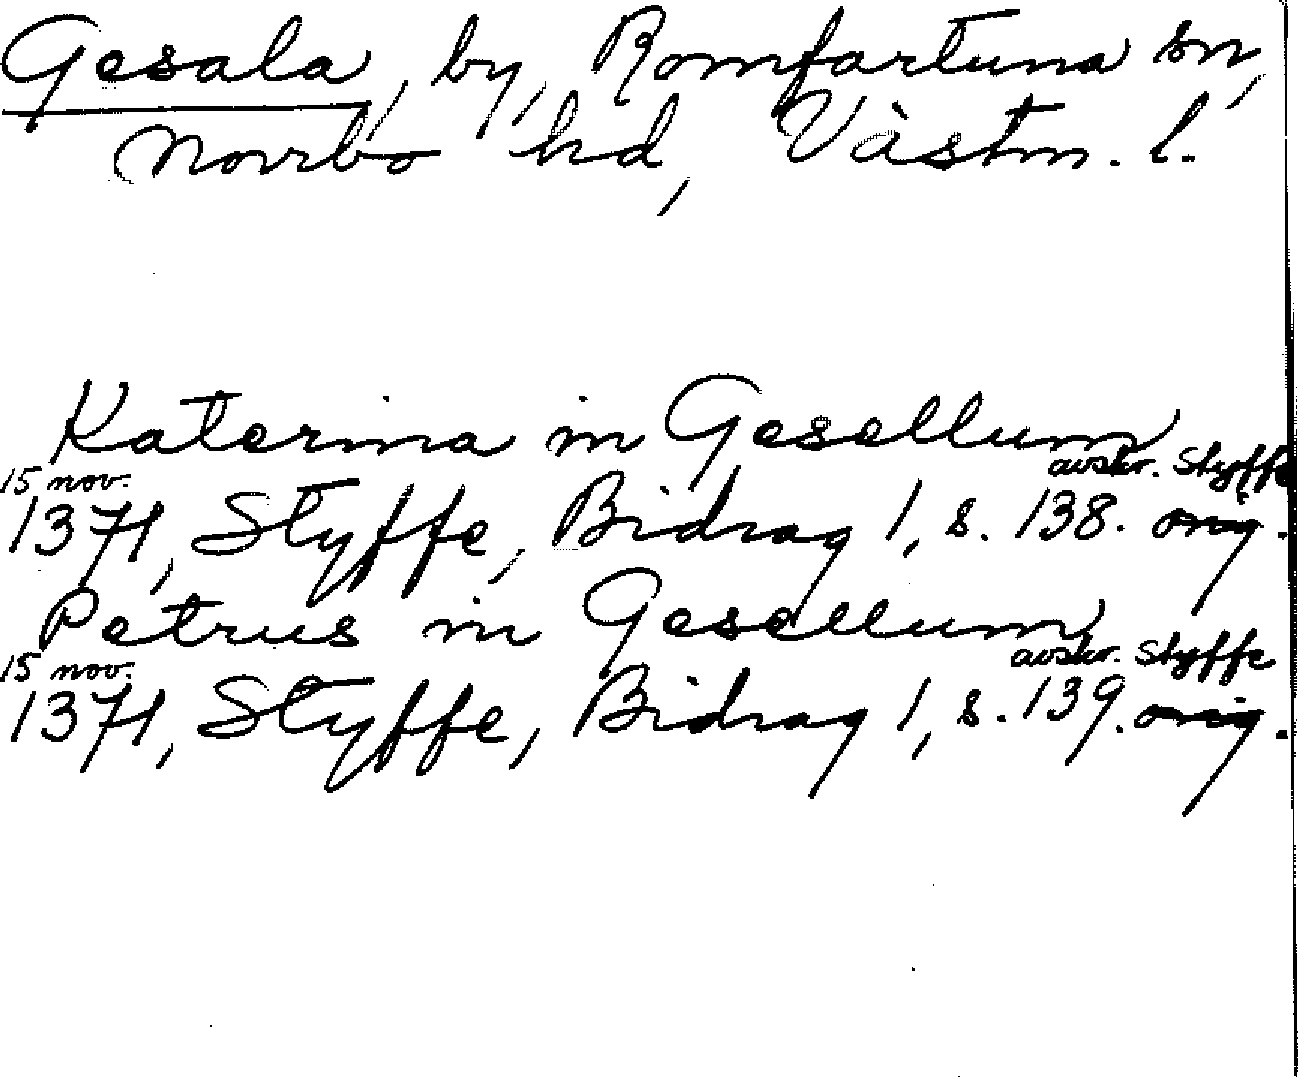 Gesala, by, Romfartuna sn,
Norrbo hd, Västm. l.
Katerina in Gesellum
15 nov. avskr. Styffe
1371, Styffe, Bidrag 1, s. 138. orig.
Petrus in Gesellum
15 nov. avskr. Styffe
1371, Styffe, Bidrag 1, s. 139. orig.